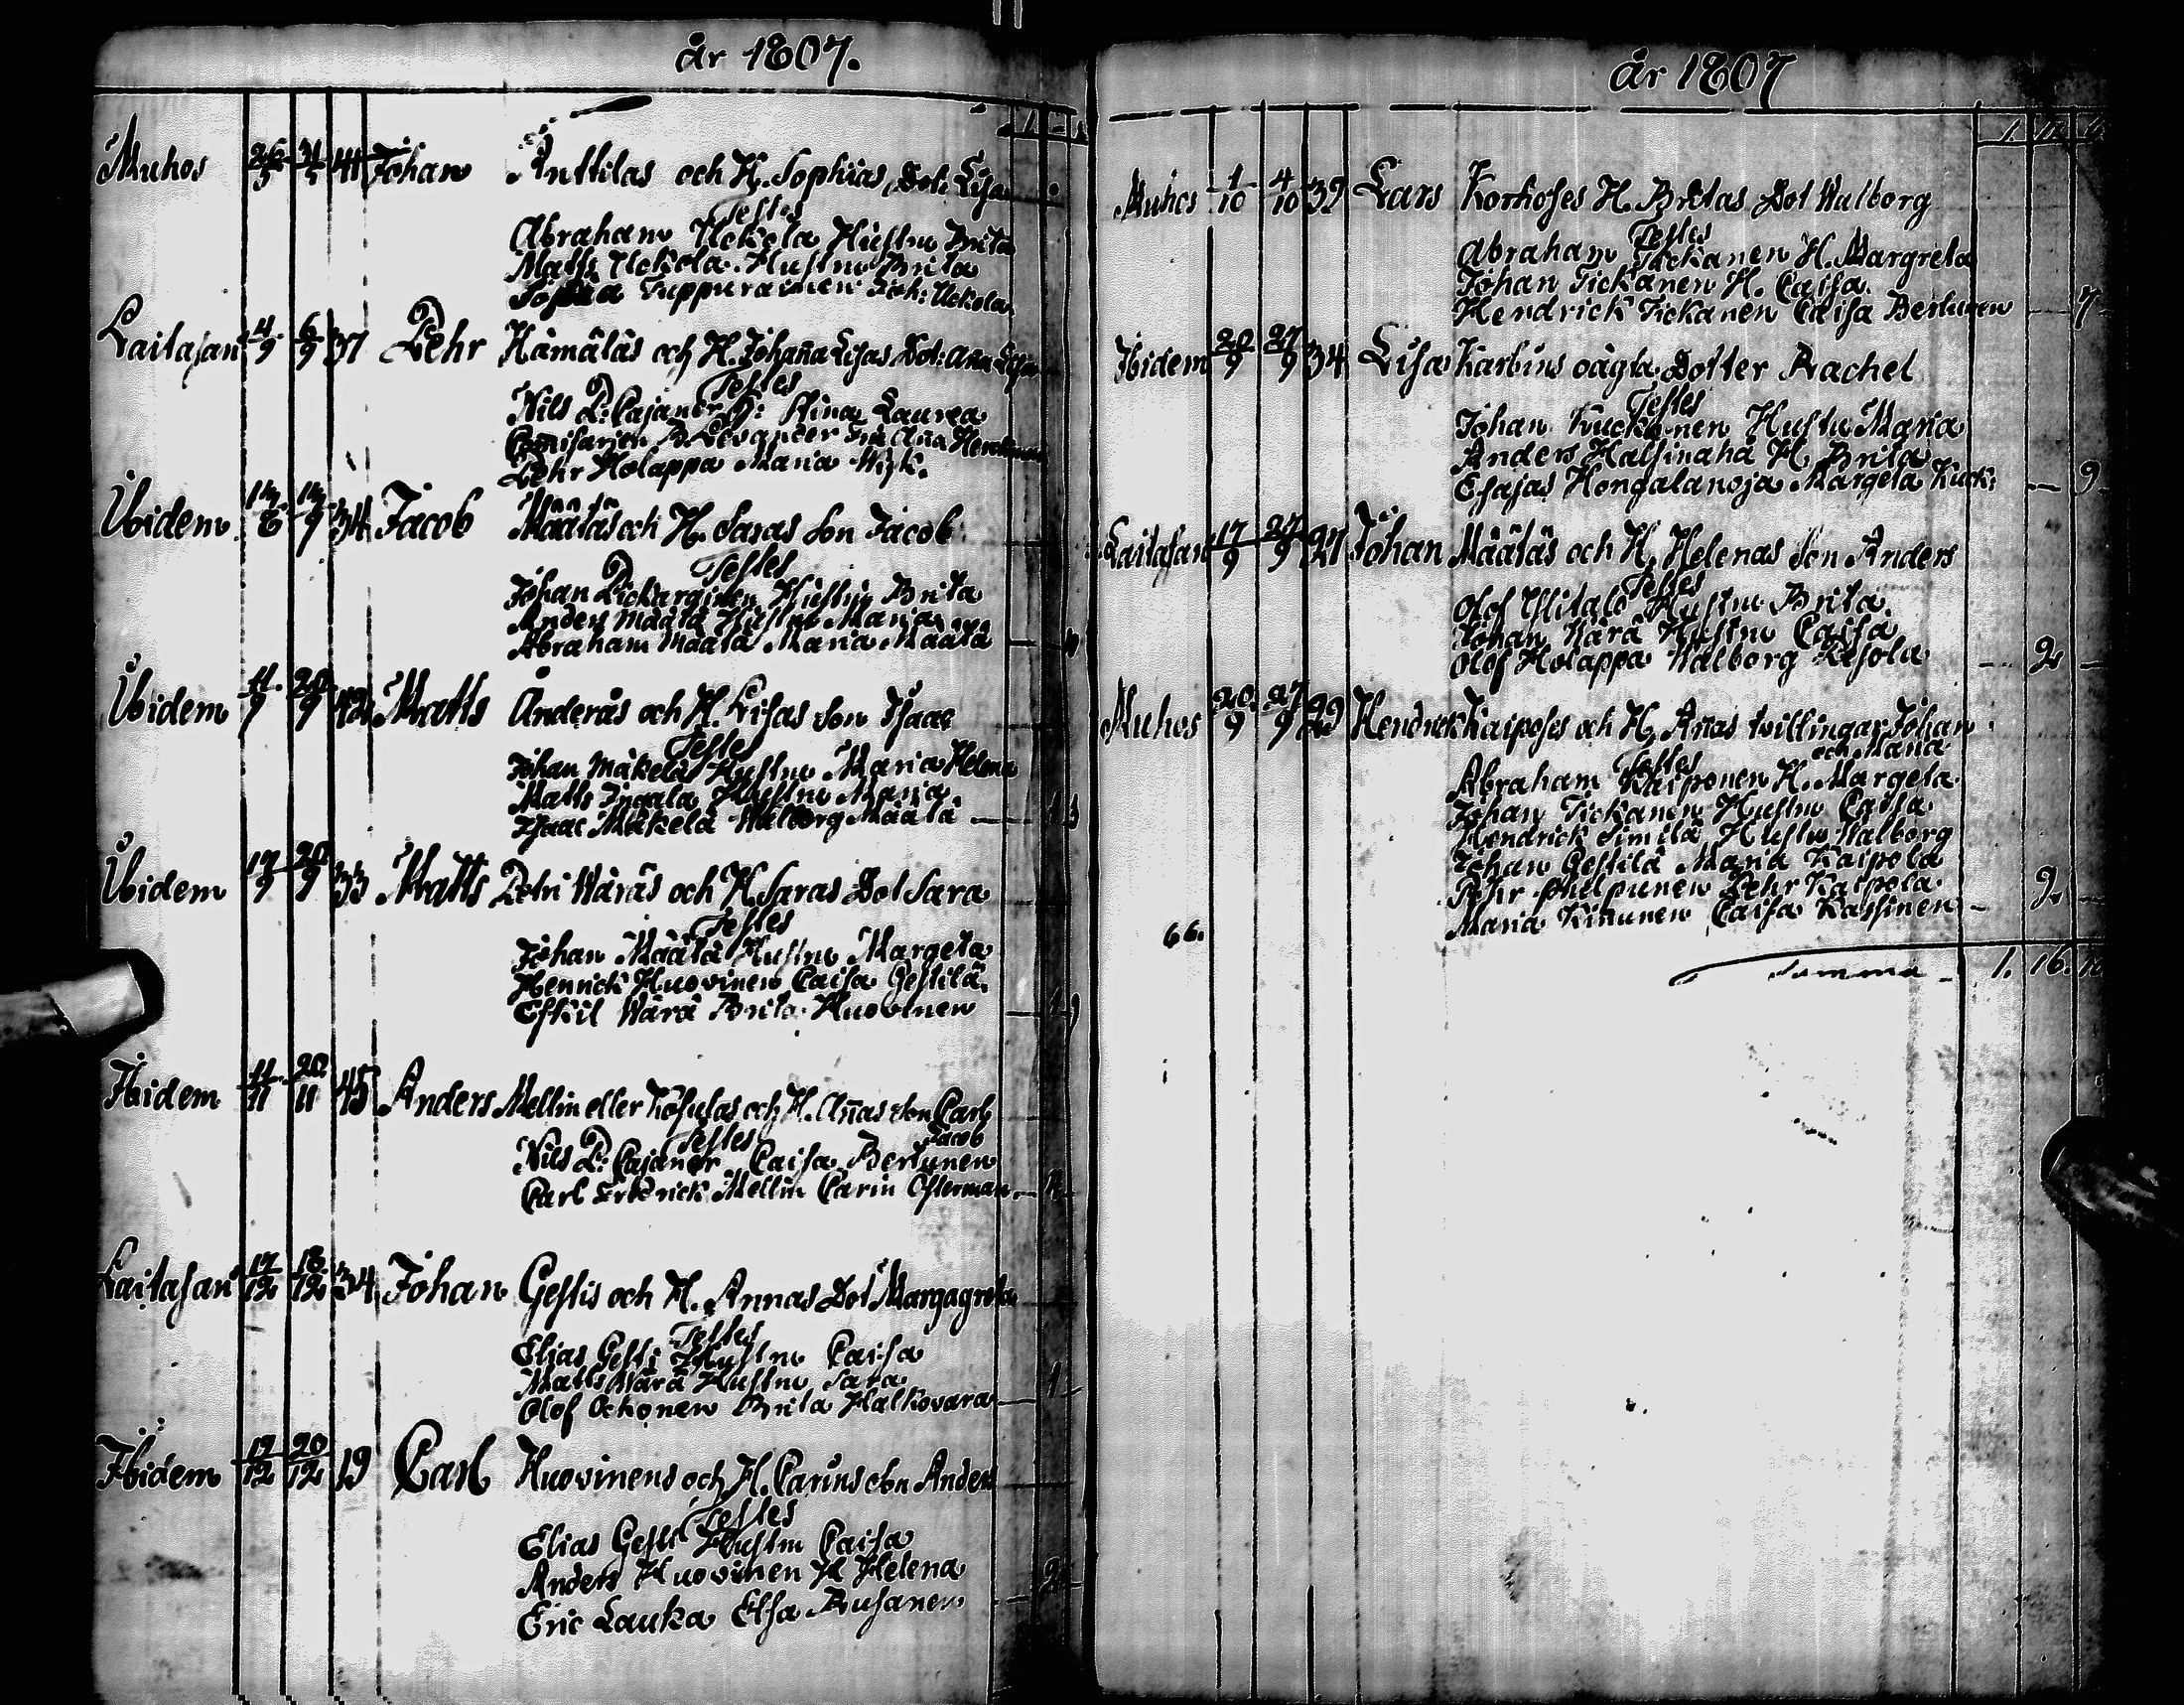 år 1807.
Muhos 26/5 31/5 41 Johan Anttilas och H. Sophias Dot: Lisa
Testes
Abraham Uckola Hustru Brita
Matts Uckola Hustru Brita
Sophia Tuppurainen Joh: Uckola
Laitasari 4/9 6/9 37 Pehr Hämäläs och H. Johaña Lisas Dot: Anna Lisa
Testes
Nils P: Cajaner H: Stina Laurea
B. Levander Anna
Pehr Holappa Maria Wisk.
Ibidem 34 Jacob Määtäs och H. Saras Son Jacob
Testes
Johan Hustru Brita
Anders Määtä Hustru Maria
Abraham Määtä Maria Määtä
Ibidem 11/9 20/9 42 Matts Anderås och H. Lisas Son Isaac
Testes
Johan Mäkelä Hustru Maria Helena
Matts Hustru Maria
Isaac Mäkelä Walborg Määtä
Ibidem 17/9 20/9 33 Matts Petri Wäräs och H. Saras Dot Sara
Testes
Johan Määtä Hustru Margeta
Henrick Huovinen Caisa Gestilä.
Eskil Wärä Brita Huovinen
Ibidem 11/11 20/11 45 Anders Mellin eller Kösuläs och H. Añas Son Carl
Jacob
Testes
Nils P: Cajaner Caisa Bertunen
Carl Frederick Mellin Carin Österman
Laitasari 17/12 18/12 34 Johan Gestis och H. Annas Dot Margagreta
Testes
Elias Gesti Hustru Caisa
Matts Wärä Hustru Sara
Olof Ockonen Brita Halkovara 1
Ibidem 17/12 20/12 19 Carl Huovinens och H. Carins son Anders
Testes
Elias Gesti Hustru Caisa
Anders Huovinen H Helena
Eric Lauka Elsa Rusanen 2
år 1807
Muhos 1/10 4/10 39 Lars Korhoses H. Britas Dot Walborg
Testes
Abraham Tickanen H. Margreta
Johan Tickanen H. Caisa
Hendrick Tickanen Caisa Bertunen 7
Ibidem 20/9 27/9 34 Lisa Karbins oägta Dotter Rachel
Testes
Johan Kuckonen Hustru Maria
Anders Halsinaha H. Brita
Esajas Hongalanoja Margeta Kuck: 9
Laitasari 17/9 27/9 27 Johan Määtäs och H. Helenas Son Anders
Testes
Olof Ylitalo Hustru Brita.
Johan Kärä Hustru Caisa
Olof Holappa Walborg Kesola 2
Muhos 20/9 27/9 29 Hendrick Kaiposes och H. Añas tvillingar Johan
och Maria
Testes
Abraham Kaiponen H. Margeta
Johan Tickanen Hustru Caisa
Hendrick Similä Hustru Walborg
Johan Gestilä Maria Kaipola
Pehr Pehr Kaipola
Maria Kinunen Caisa Kassinen 2
66.
Summa 1. 16.